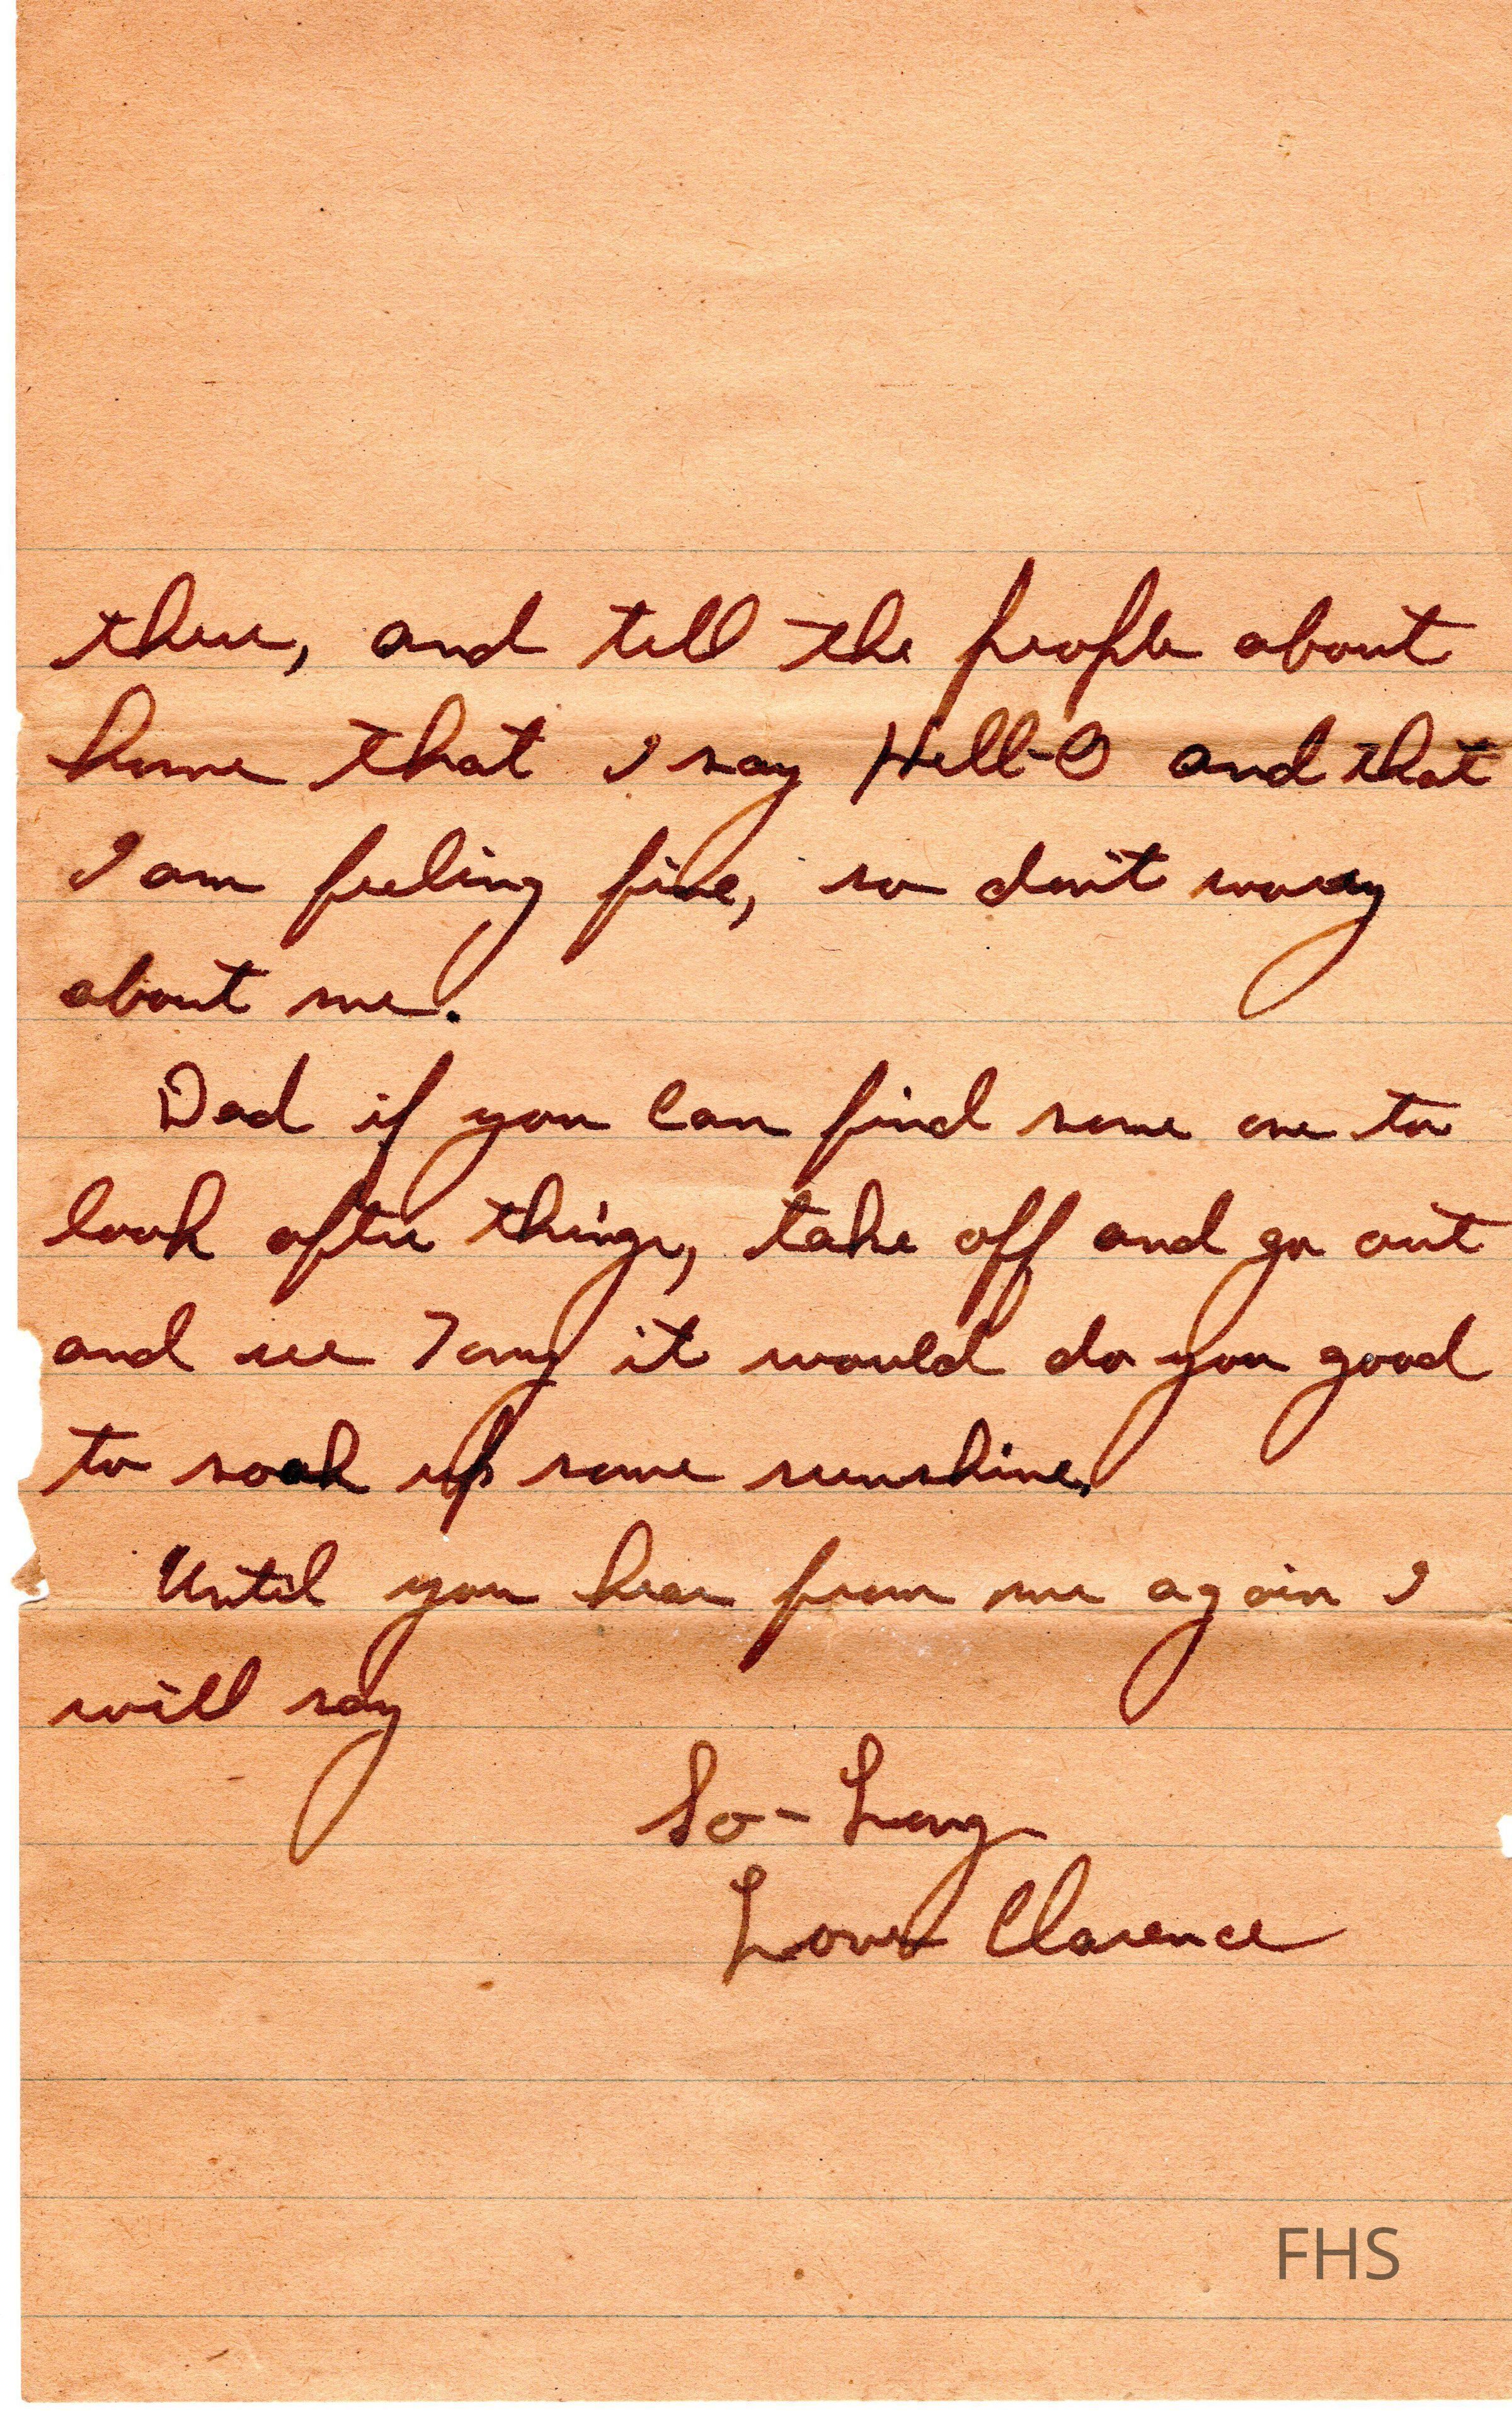 there, and tell the people about
home that I say Hell-O and that
I am feeling fine, so don't worry
about me.
Dad if you can find some one to
look after things, take off and go out
and see Tony it would do you good
to soak up some sunshine.
Until you hear from me again I
will say
So-Long
Love Clarence
FHS